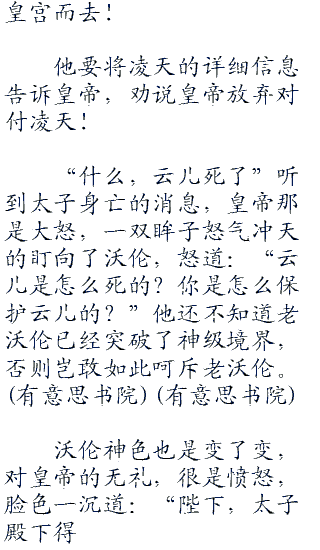 皇宫而去！
他要将凌天的详细信息
告诉皇帝，劝说皇帝放弃对
付凌天！
“什么，云儿死了”听
到太子身亡的消息，皇帝那
是大怒，一双眸子怒气冲天
的盯向了沃伦，怒道：“云
儿是怎么死的？你是怎么保
护云儿的？”他还不知道老
沃伦已经突破了神级境界，
否则岂敢如此呵斥老沃伦。
(有意思书院)(有意思书院)
沃伦神色也是变了变，
对皇帝的无礼，很是愤怒，
脸色一沉道：“陛下，太子
殿下得